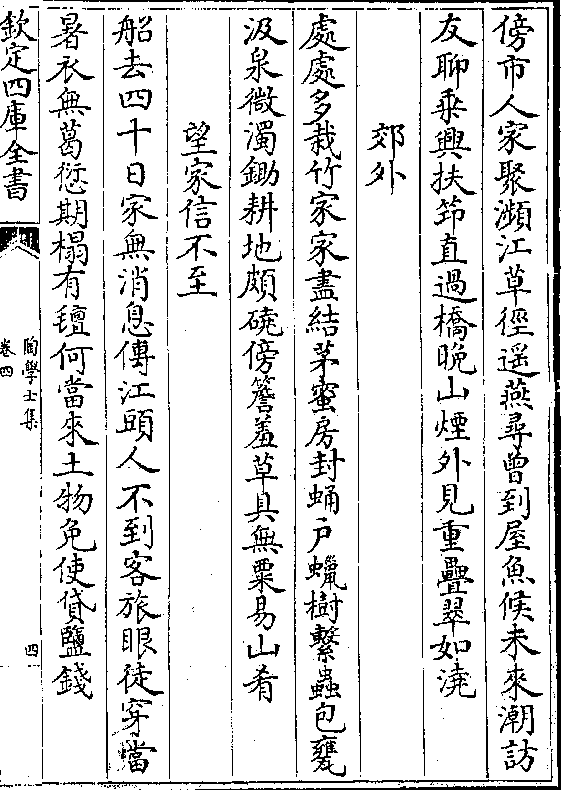 傍市人家聚瀕江草徑遥燕尋曾到屋魚候未來潮訪
友聊乘興扶筇直過橋晩山煙外見重疊翠如澆
郊外
處處多栽竹家家盡結茅蜜房封蛹户蠟樹繫蟲包甕
汲泉微濁鋤耕地頗磽傍簷羞草具無粟易山肴
望家信不至
船去四十日家無消息傳江頭人不到客旅眼徒穿當
暑衣無葛愆期榻有氊何當來土物免使貸鹽錢
欽定四庫全書
陶學士集
卷四
四